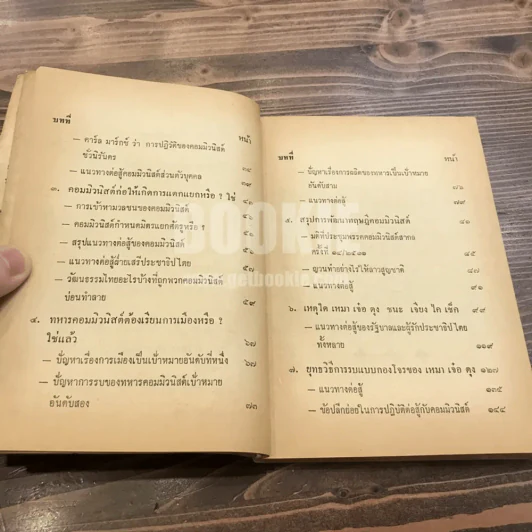 บทที่ หน้า
— คาร์ล มาร์กซ์ ว่า การปฏิวัติของคอมมิวนิสต์
ชั่วนิรันดร ๓๔
— แนวทางต่อสู้คอมมิวนิสต์ส่วนตัวบุคคล ๓๙
๓. คอมมิวนิสต์ก่อให้เกิดการแตกแยกหรือ ? ใช่ ๔๖
— การเข้าหามวลชนของคอมมิวนิสต์
— คอมมิวนิสต์กำหนดมิตรแยกศัตรูหรือ ?
— สรุปแนวทางต่อสู้ของคอมมิวนิสต์
— แนวทางต่อสู้ฝ่ายเสรีประชาธิปไตย ๕๗
— วัฒนธรรมไทยอะไรบ้างที่ถูกพวกคอมมิวนิสต์
บ่อนทำลาย ๕๙
๔. ทหารคอมมิวนิสต์ต้องเรียนการเมืองหรือ ?
ใช่แล้ว ๖๗
— ปัญหาเรื่องการเมืองเป็นเป้าหมายอันดับที่หนึ่ง ๖๗
— ปัญหาการรบของทหารคอมมิวนิสต์เป้าหมาย
อันดับสอง ๗๓
บทที่ หน้า
— ปัญหาเรื่องการผลิตของทหารเป็นเป้าหมาย
อันดับสาม ๗๖
— แนวทางต่อสู้ ๗๙
๕. สรุปการพัฒนาทฤษฎีคอมมิวนิสต์
— มติที่ประชุมพรรคคอมมิวนิสต์สากล
ครั้งที่ ๘๕
— ญวนทำอย่างไรให้ลาวสูญชาติ
— แนวทางต่อสู้ ๙๑
๖. เหตุใด เหมา เจ๋อ ตุง ชนะ เจียง ไค เช็ค ๙๙
— แนวทางต่อสู้ของรัฐบาลและผู้รักประชาธิปไตย
ทั้งหลาย ๑๑๙
๗. ยุทธวิธีการรบแบบกองโจรของ เหมา เจ๋อ ตุง ๑๒๗
— แนวทางต่อสู้ ๑๓๕
— ข้อปลีกย่อยในการปฏิบัติต่อสู้กับคอมมิวนิสต์ ๑๔๔